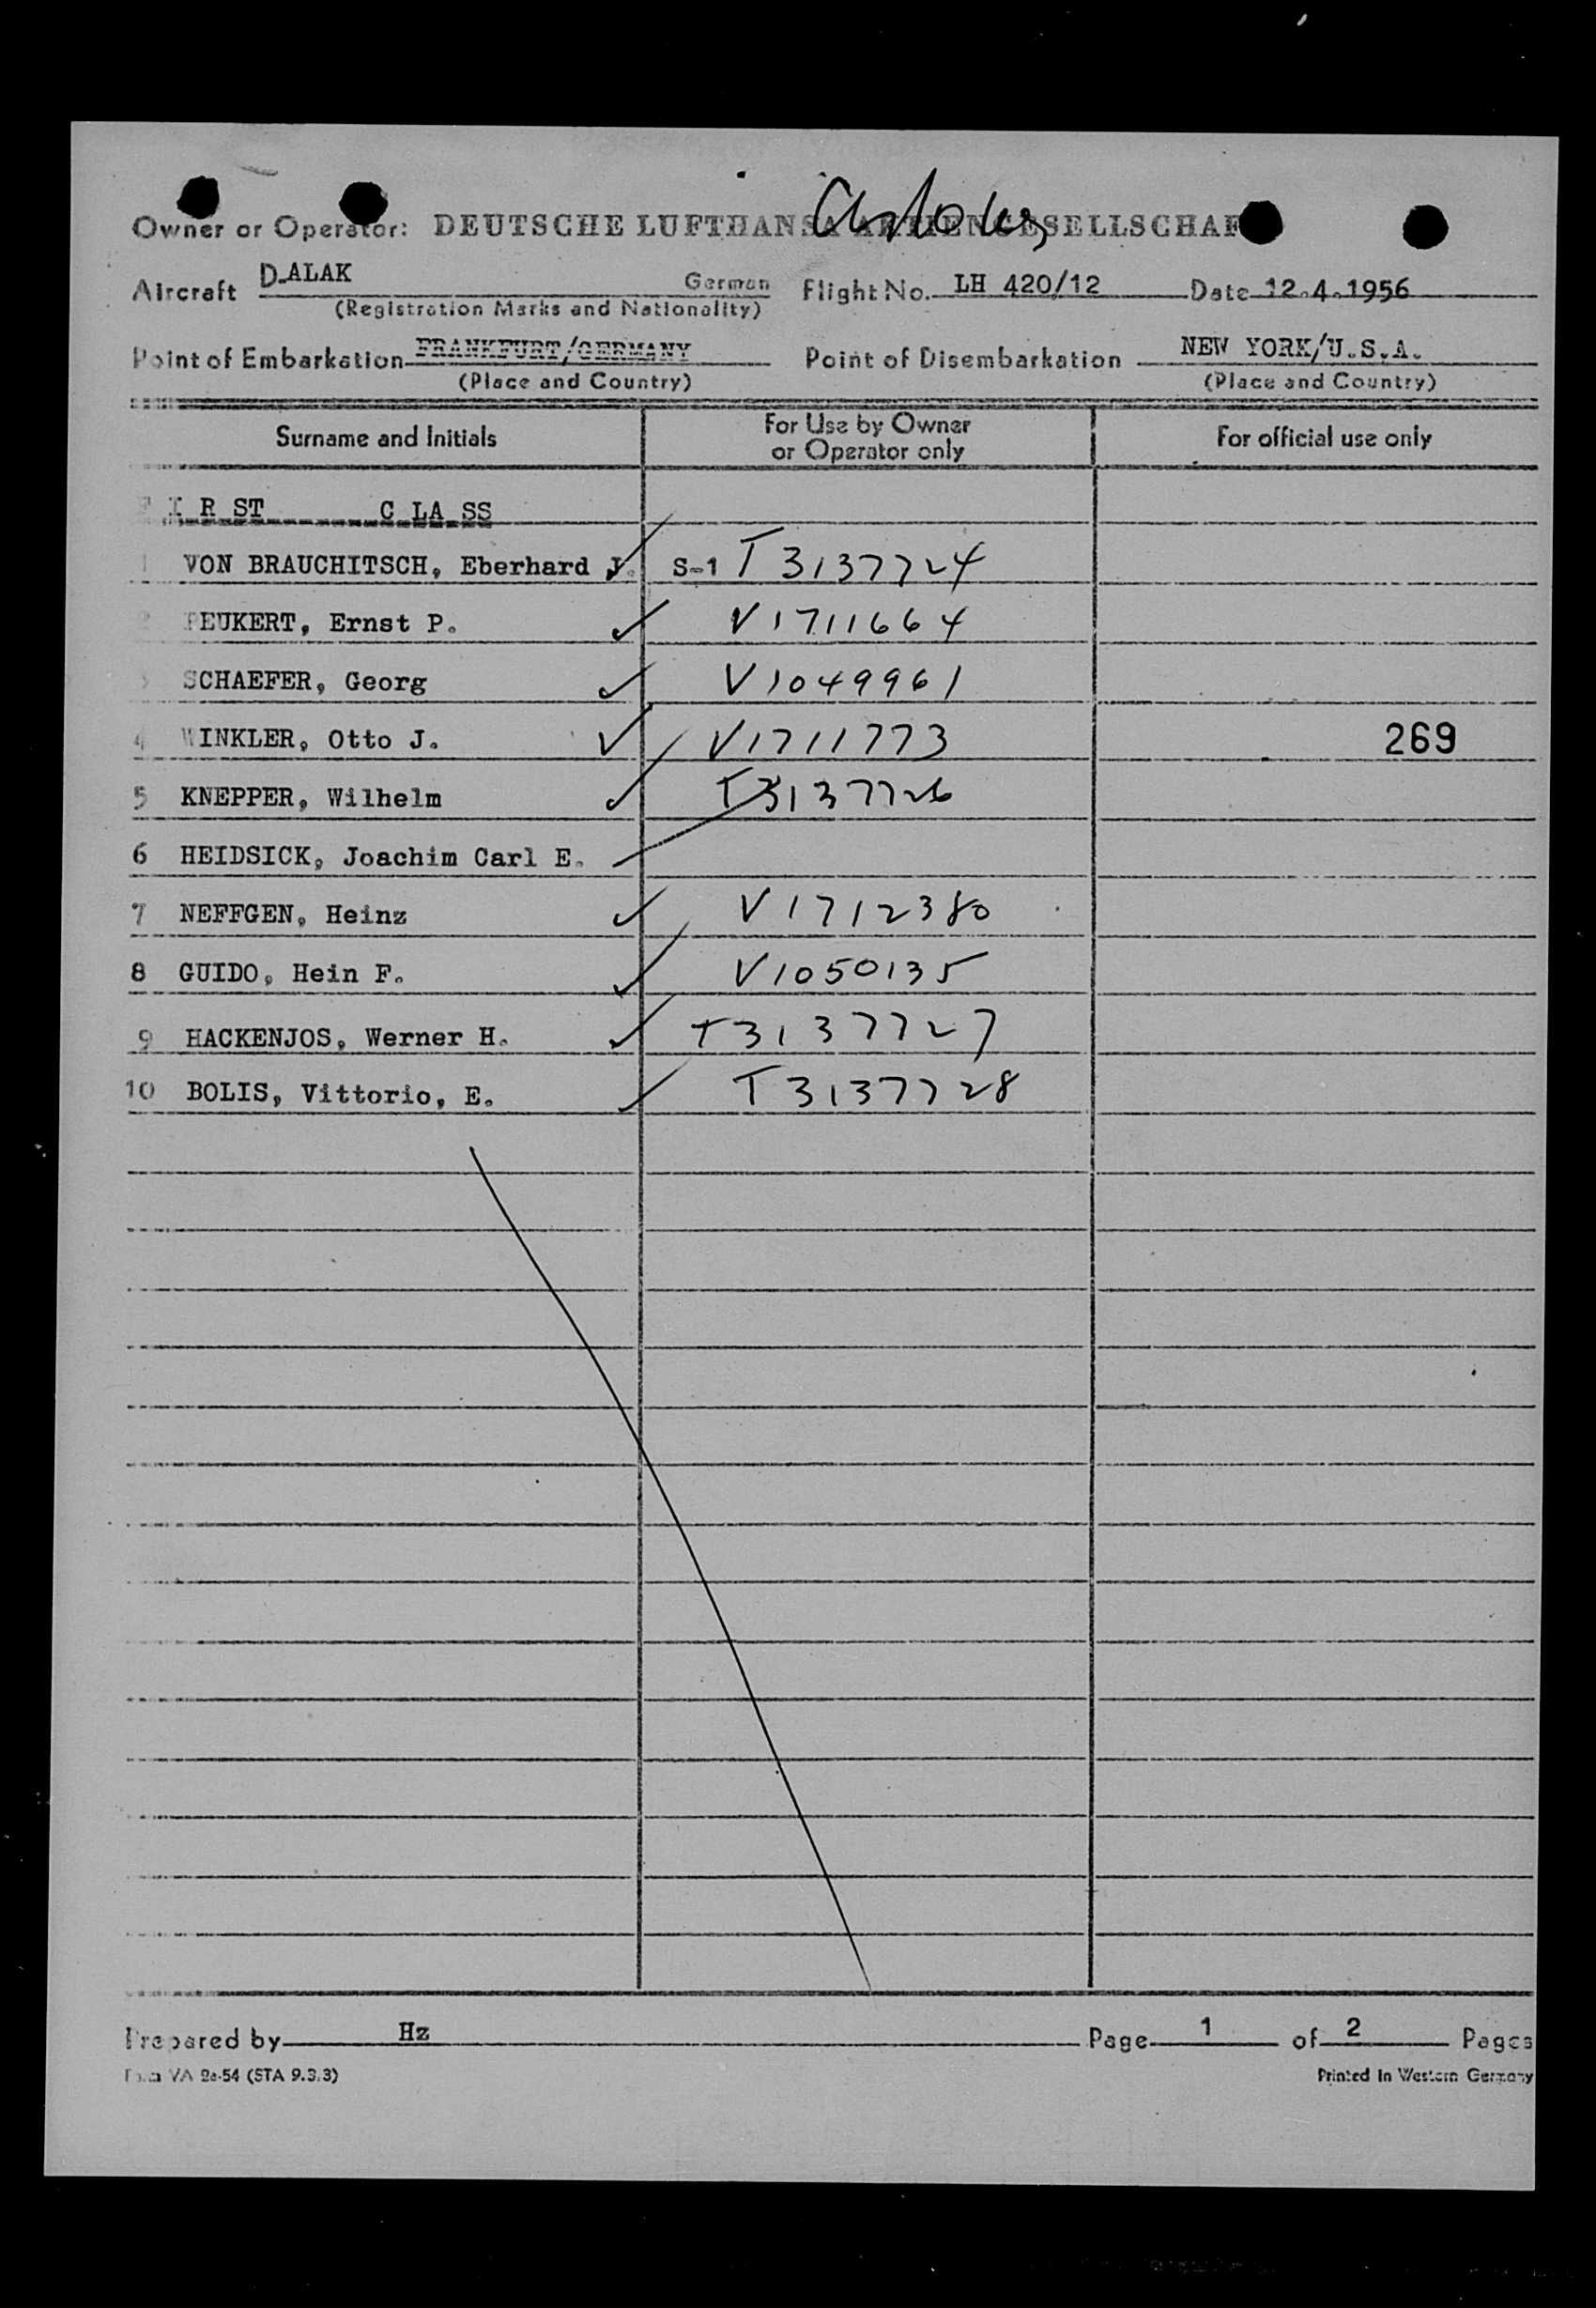 Owner or Operator: DEUTSCHE LUFTHANSA AKTIENGESELLSCHAF
Aircraft D-ALAK German Flight No. LH 420/12 Date 12.4.1956
(Registration Marks and Nationality)
Point of Embarkation FRANKFURT/GERMANY Point of Disembarkation NEW YORK/U.S.A.
(Place and Country) (Place and Country)
Surname and Initials For Use by Owner or Operator only For official use only
F I R ST C LA SS
1 VON BRAUCHITSCH, Eberhard J. S-1 T 3137724
2 PEUKERT, Ernst P. V1711664
3 SCHAEFER, Georg V1049961
4 WINKLER, Otto J. V1711773 269
5 KNEPPER, Wilhelm T3137726
6 HEIDSICK, Joachim Carl E.
7 NEFFGEN, Heinz V1712380
8 GUIDO, Hein F. V1050135
9 HACKENJOS, Werner H. T3137727
10 BOLIS, Vittorio, E. T3137728
Prepared by Hz Page 1 of 2 Pages
Form VA 2a-54 (STA 9.3.3) Printed in Western Germany